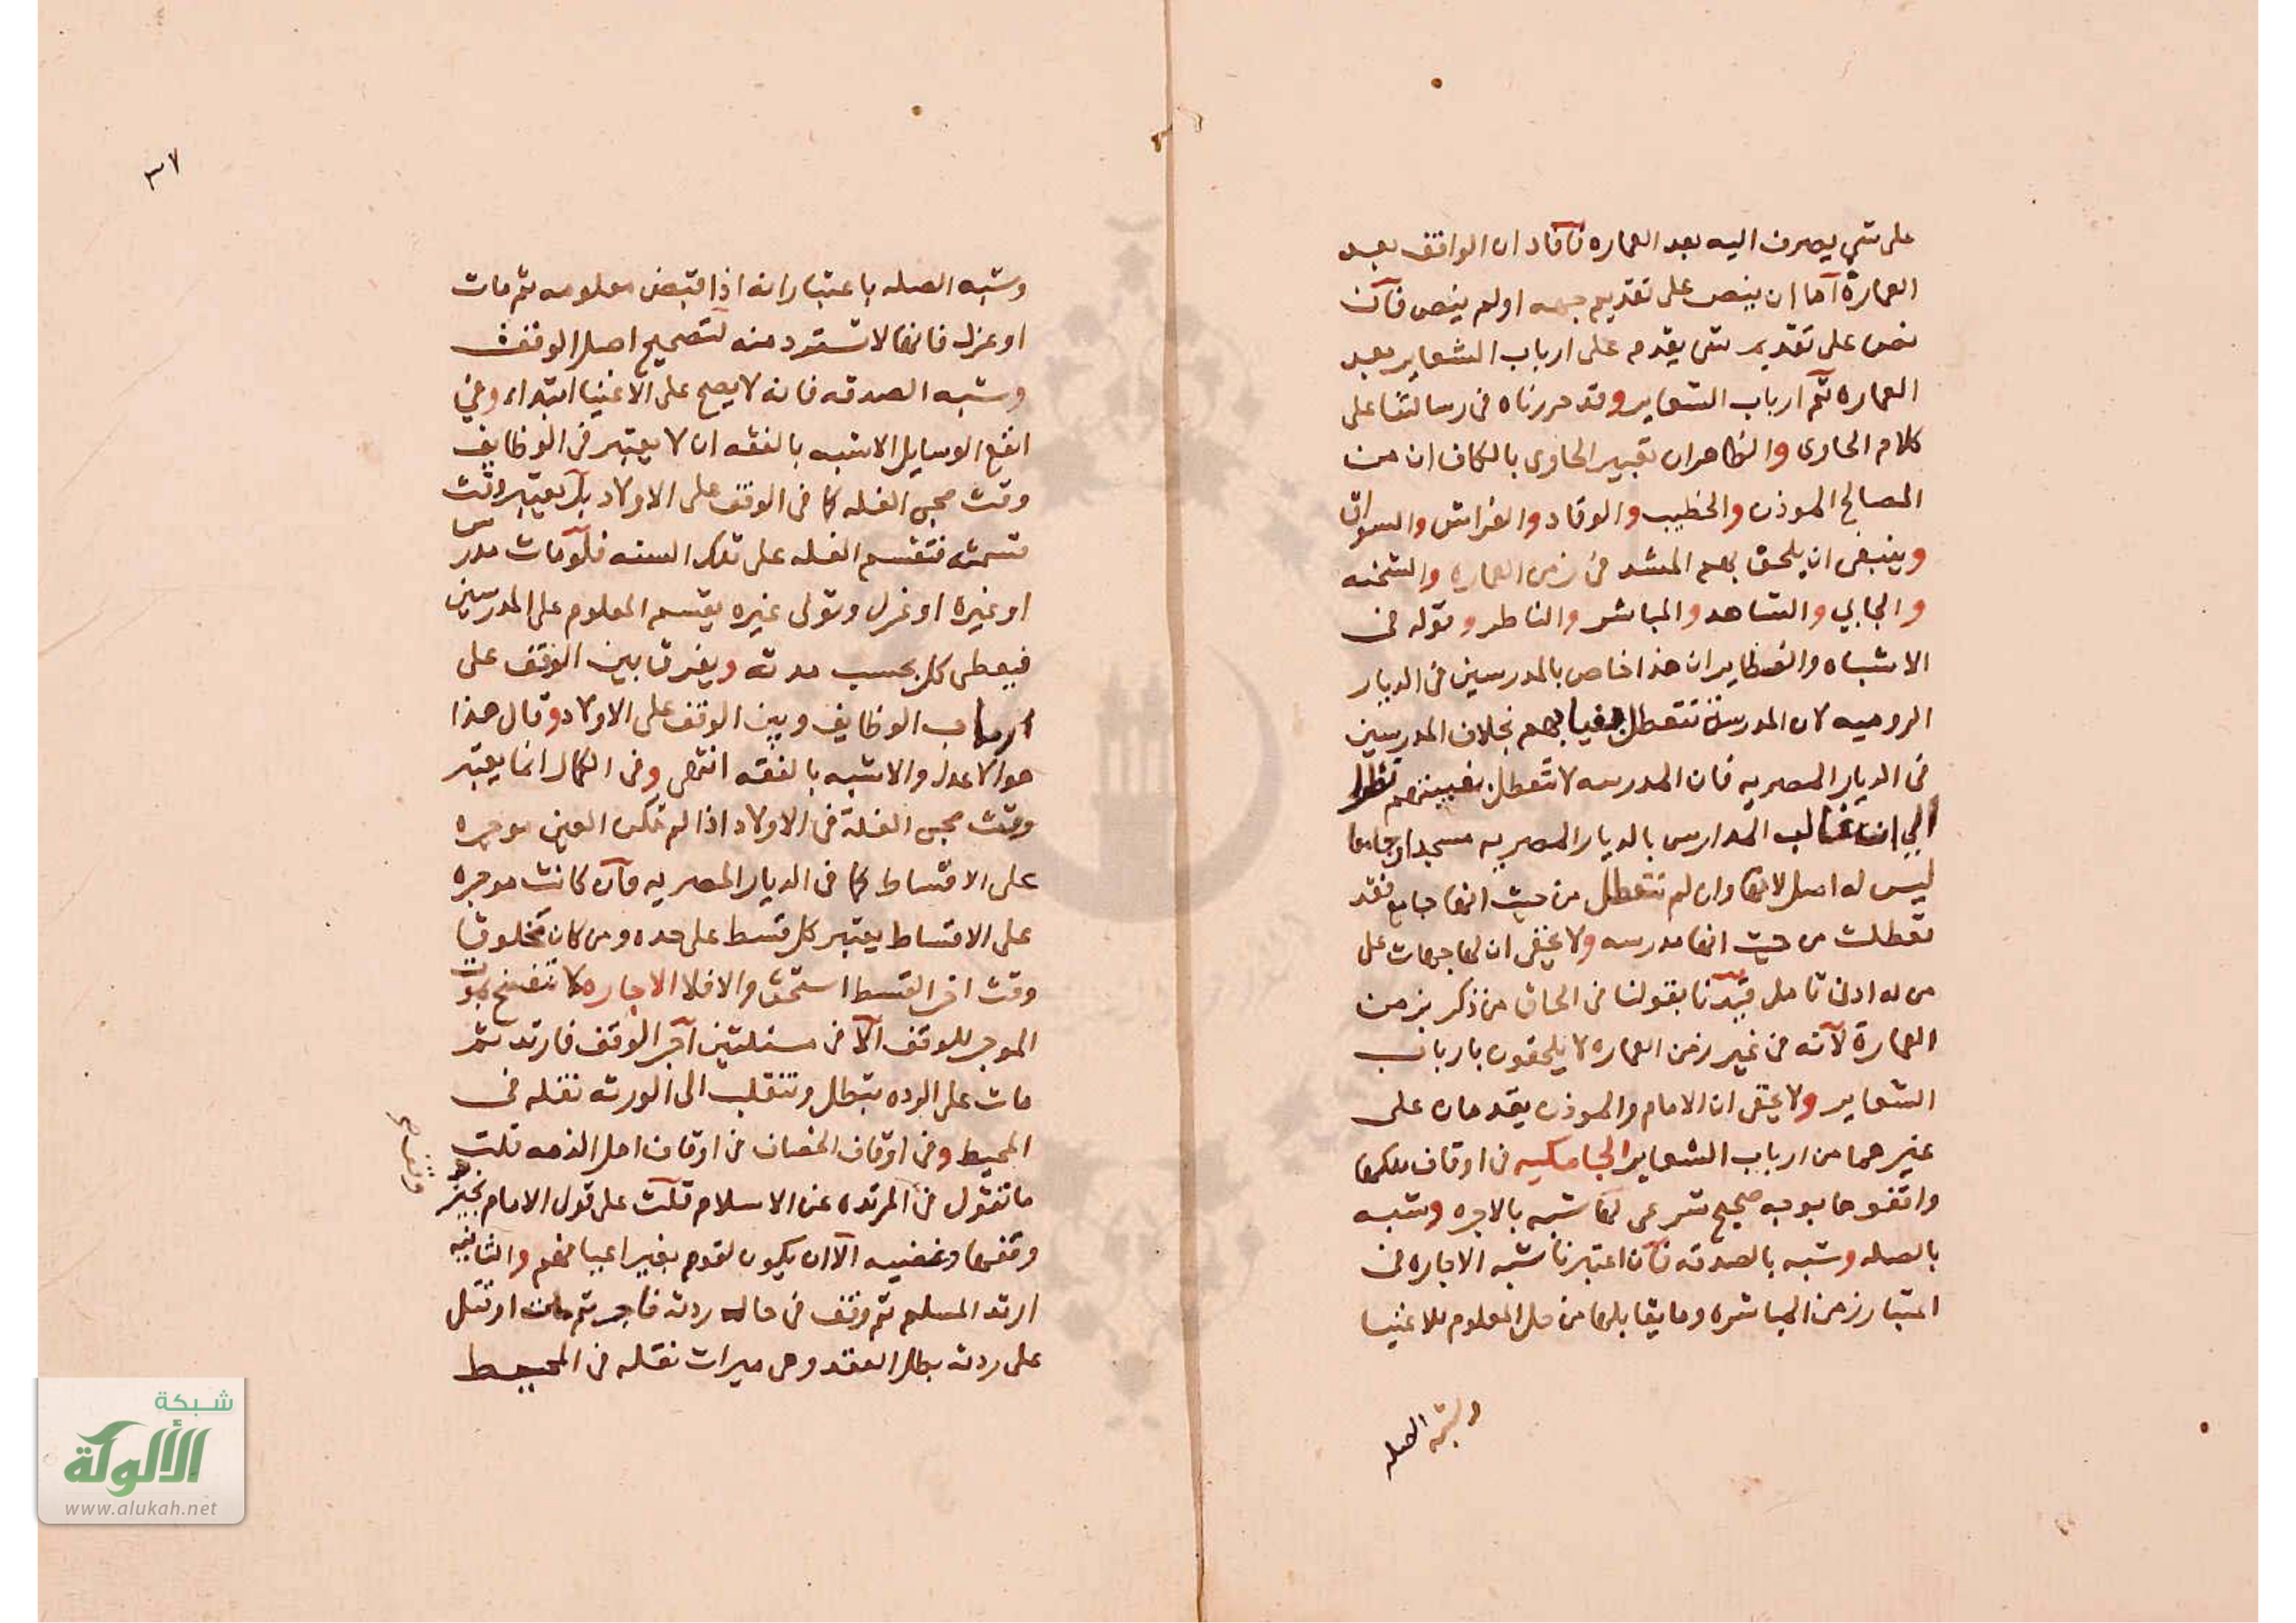 على شي يصرف اليه بعد العماره فآفاد ان الواقف بعد
العمارة آما ان ينص على تقديم جهه اولم ينص فآن
نص على تقديم شي يقدم على ارباب الشعاير بعد
العماره ثم ارباب الشعاير وقد حررناه فى رسالتنا على
كلام الحاوى والظاهران تعبير الحاوى بالكاف ان من
المصالح الموذن والخطيب والوقاد والفراش والسواق
وينبغى ان يلحق بهم المشد فى زمن العماره والشحنه
والجابي والشاهد والمباشر والناظر وقوله فى
الاشباه والنظاير ان هذا خاص بالمدرسين فى الديار
الروميه لان المدرسة تتعطل بغيابهم بخلاف المدرسين
فى الديار المصريه فان المدرسه لا تتعطل بغيبتهم نظرا
الي ان غالب المدارس بالديار المصريه مسجدا وجامعا
ليس له اصل لانها وان لم تتعطل من حيث انها جامع فقد
تعطلت من حيث انها مدرسه ولا يخفى ان لها جهات على
من له ادنى تامل قيدنا بقولنا فى الحاق من ذكر بزمن
العمارة لآنه فى غير زمن العماره لا يلحقون بارباب
الشعاير ولا يخفى ان الامام والموذن يقدمان على
غيرهما من ارباب الشعاير الجامكيه فى اوقاف ملكها
واقفوها بوجه صحيح شرعى لها شبه بالاجره وشبه
بالصله وشبه بالصدقه فآن اعتبرنا شبه الاجاره فى
اعتبار زمن المباشره وما يقابلها من حل المعلوم للاغنيا
وشبه الصله
٣٧
وشبه الصله باعتبار انه اذا قبض معلومه ثم مات
او عزل فانها لا تسترد منه لتصحيح اصل الوقف
وشبه الصدقه فانه لا يصح على الاغنيا ابتداء وفي
انفع الوسايل الاشبه بالفقه ان لا يعتبر فى الوظايف
وقت مجى الغله كما فى الوقف على الاولاد بل يعتبر وقت
قسمته فتقسم الغله على تلك السنه فلو مات مدرس
او غيره او عزل وتولى غيره يقسم المعلوم على المدرسين
فيعطى كل بحسب مدته ويفرق بين الوقف على
ارباب الوظايف وبين الوقف على الاولاد وقال هذا
هو الاعدل والاشبه بالفقه انتهى وفى الكمال انما يعتبر
وقت مجى الغلة فى الاولاد اذا لم تكن العين موجره
على الاقساط كما فى الديار المصريه فآن كانت موجره
على الاقساط يعتبر كل قسط على حده ومن كان مخلوقا
وقت اخر القسط استحق والا فلا الاجاره لا تنفسخ بموت
الموجر للوقف الآ فى مسئلتين آجر الوقف فارتد ثم
مات على الرده تبطل وتنقلب الى الورثه نقله فى
المحيط وفى اوقاف الخصاف فى اوقاف اهل الذمه قلت
ما تقول فى المرتده عن الاسلام قلت على قول الامام نجيز
وقفها وغضيه الآ ان يكون لقوم بغير اعيانهم والثانيه
ارتد المسلم ثم وقف فى حاله ردته فآجر ثم مات او قتل
على ردته بطل العقد وهى ميراث نقله فى المحيط
شبكة
الألوكة
www.alukah.net